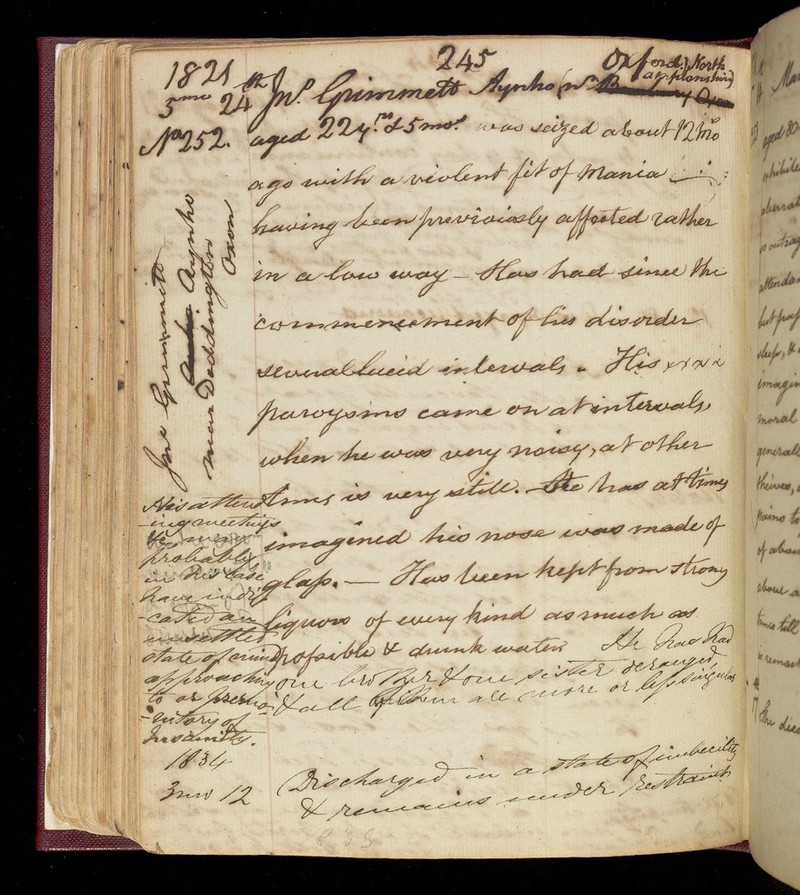 245
1821
5mo 24th
No 252.
Oxford.) North
amptonshire)
Jno. Grimmett Aynho (nr Banbury Oxon
aged 22 yrs & 5 mos. was seized about 12 mo
ago with a violent fit of Mania
having been previously affected rather
in a low way - Has had since the
commencement of his disorder
several lucid intervals. His x x x x
paroxysms came on at intervals
when he was very noisy, at other
times is very still. He has at times
imagined his nose was made of
glass. — Has been kept from strong
liquors of every kind as much as
possible & drunk water He has had
one brother & one sister deranged,
& all of them all more or less singular
Discharged in a state of imbecility
& remains under restraint
Jno Grimmett
Aynho
near Deddington
Oxon
His attend
-ing meetings
probably
in his case
have indi
-cated an
unsettled
state of mind
approaching
to or premo
-nitory of
Insanity.
1834
3mo 12